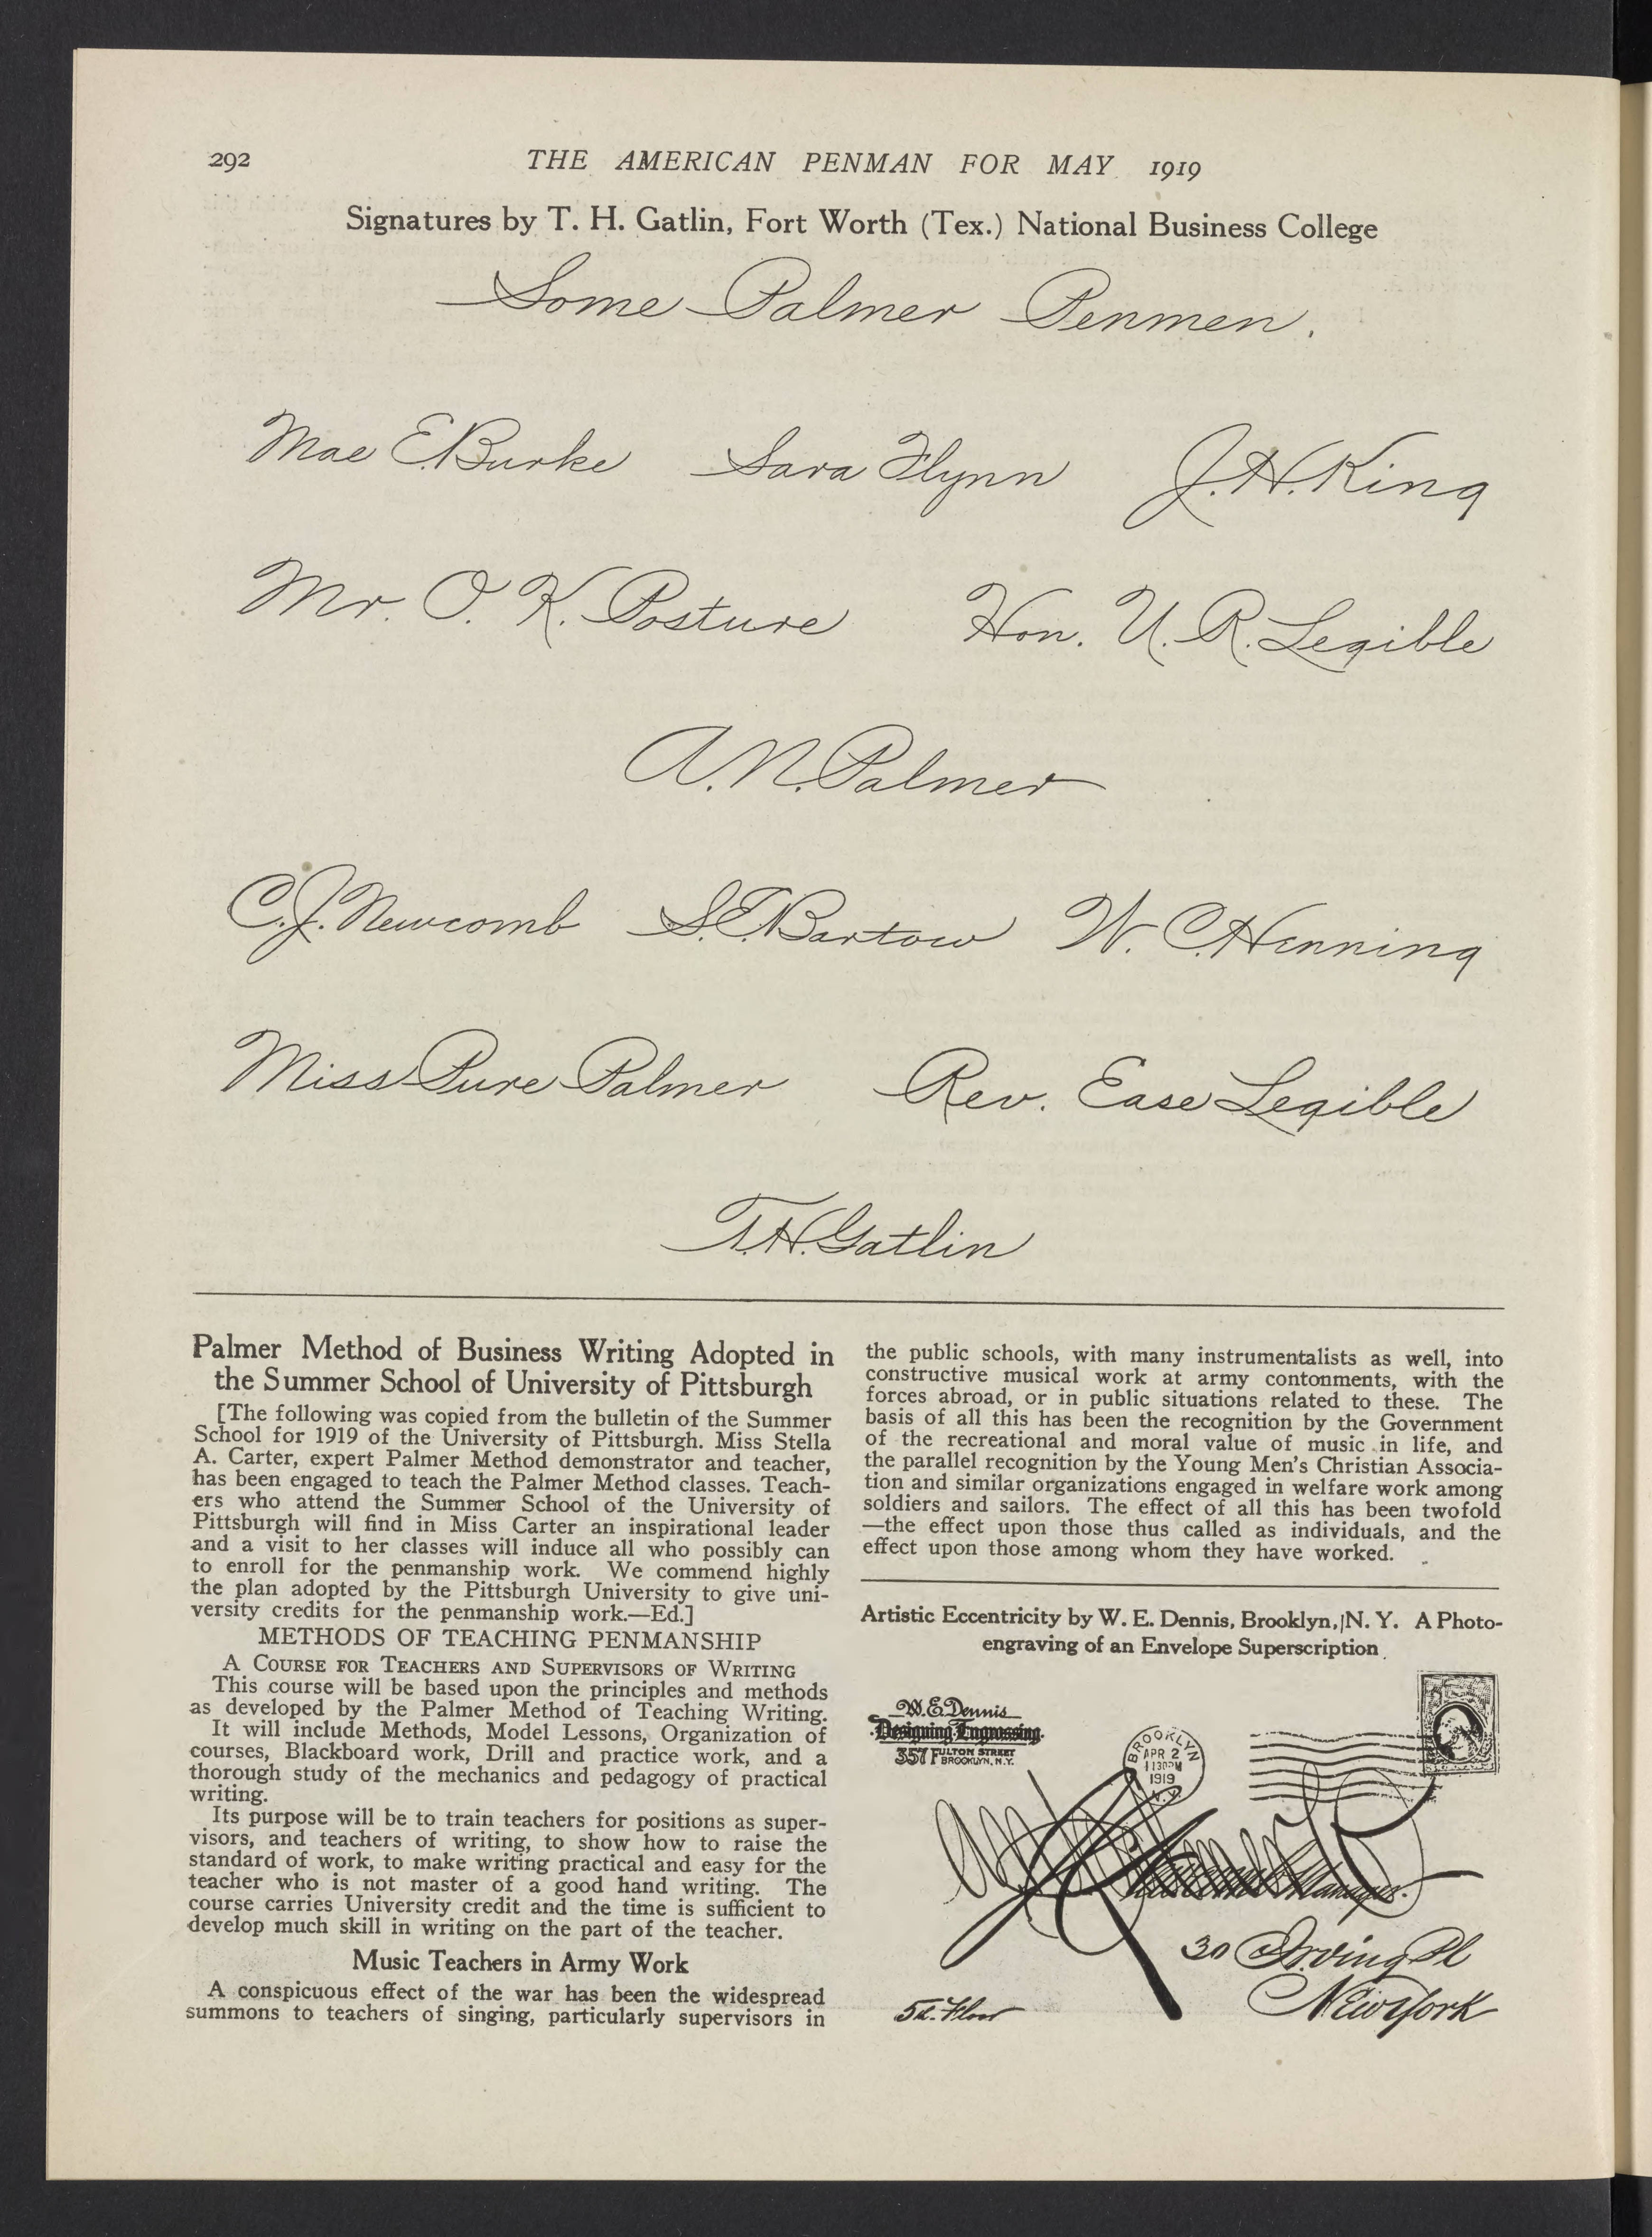 292
THE AMERICAN PENMAN FOR MAY 1919
Signatures by T. H. Gatlin, Fort Worth (Tex.) National Business College
Some Palmer Penmen.
Mae E. Burke Sara Flynn J. H. King
Mr. O. K. Posture Hon. U. R. Legible
A. N. Palmer
C. J. Newcomb S. E. Bartow W. C. Henning
Miss Pure Palmer Rev. Ease Legible
T. H. Gatlin
Palmer Method of Business Writing Adopted in
the Summer School of University of Pittsburgh
[The following was copied from the bulletin of the Summer
School for 1919 of the University of Pittsburgh. Miss Stella
A. Carter, expert Palmer Method demonstrator and teacher,
has been engaged to teach the Palmer Method classes. Teach-
ers who attend the Summer School of the University of
Pittsburgh will find in Miss Carter an inspirational leader
and a visit to her classes will induce all who possibly can
to enroll for the penmanship work. We commend highly
the plan adopted by the Pittsburgh University to give uni-
versity credits for the penmanship work.—Ed.]
METHODS OF TEACHING PENMANSHIP
A COURSE FOR TEACHERS AND SUPERVISORS OF WRITING
This course will be based upon the principles and methods
as developed by the Palmer Method of Teaching Writing.
It will include Methods, Model Lessons, Organization of
courses, Blackboard work, Drill and practice work, and a
thorough study of the mechanics and pedagogy of practical
writing.
Its purpose will be to train teachers for positions as super-
visors, and teachers of writing, to show how to raise the
standard of work, to make writing practical and easy for the
teacher who is not master of a good hand writing. The
course carries University credit and the time is sufficient to
develop much skill in writing on the part of the teacher.
Music Teachers in Army Work
A conspicuous effect of the war has been the widespread
summons to teachers of singing, particularly supervisors in
the public schools, with many instrumentalists as well, into
constructive musical work at army contonments, with the
forces abroad, or in public situations related to these. The
basis of all this has been the recognition by the Government
of the recreational and moral value of music in life, and
the parallel recognition by the Young Men's Christian Associa-
tion and similar organizations engaged in welfare work among
soldiers and sailors. The effect of all this has been twofold
—the effect upon those thus called as individuals, and the
effect upon those among whom they have worked.
Artistic Eccentricity by W. E. Dennis, Brooklyn, N. Y. A Photo-
engraving of an Envelope Superscription
W. E. Dennis
Designing Engrossing
357 FULTON STREET
BROOKLYN, N.Y.
BROOKLYN
APR 2
1130PM
1919
N.Y.
Manager.
30 Irving Pl
New York
5th Floor